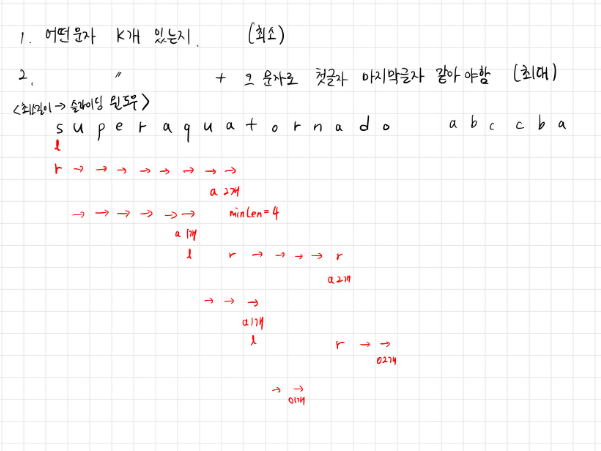 1. 어떤문자 K개 있는지. (최소)
2. 〃 + 그 문자로 첫글자 마지막글자 같아야함 (최대)
<최소길이 → 슬라이딩 윈도우>
s u p e r a q u a t o r n a d o a b c c b a
l
r → → → → → → → →
a 2개
→ → → → → → minLen = 4
a 1개
l r → → → → r
a 2개
→ → →
a 1개
l r → →
o 2개
→ →
o 1개